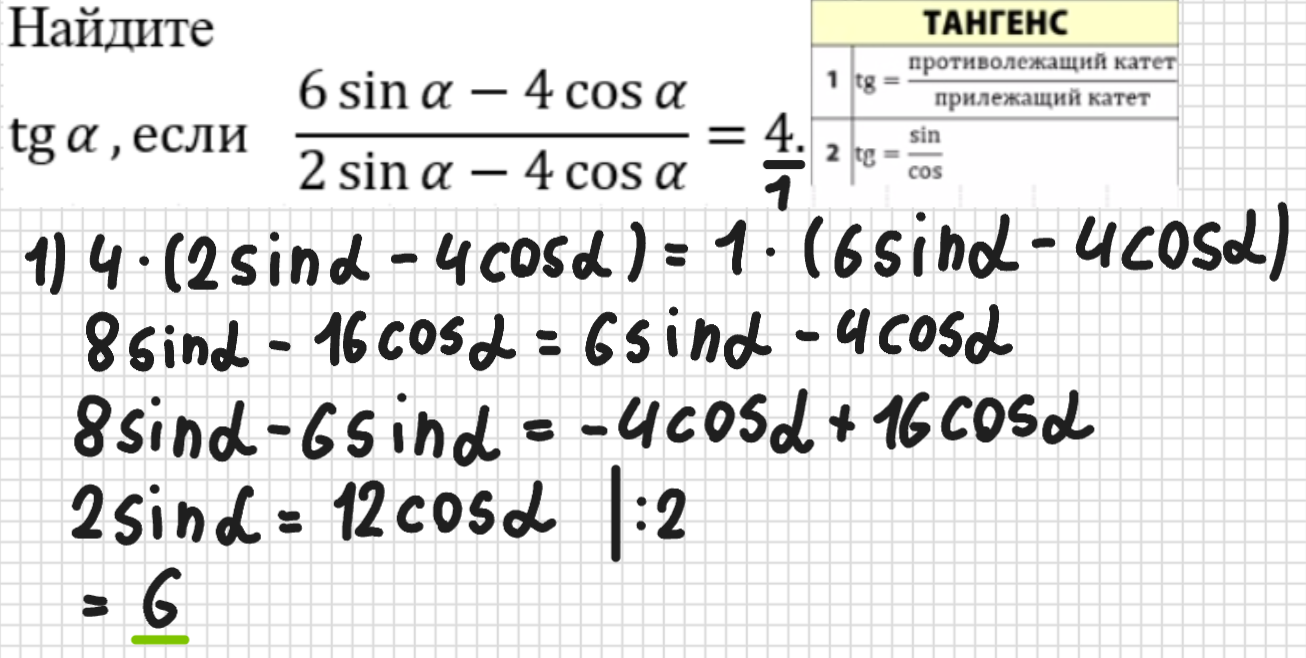 Найдите
tg α , если (6 sin α − 4 cos α)/(2 sin α − 4 cos α) = 4.
1
ТАНГЕНС
1 tg = противолежащий катет/прилежащий катет
2 tg = sin/cos
1) 4·(2sinα - 4cosα) = 1·(6sinα - 4cosα)
8sinα - 16cosα = 6sinα - 4cosα
8sinα - 6sinα = -4cosα + 16cosα
2sinα = 12cosα |:2
= 6